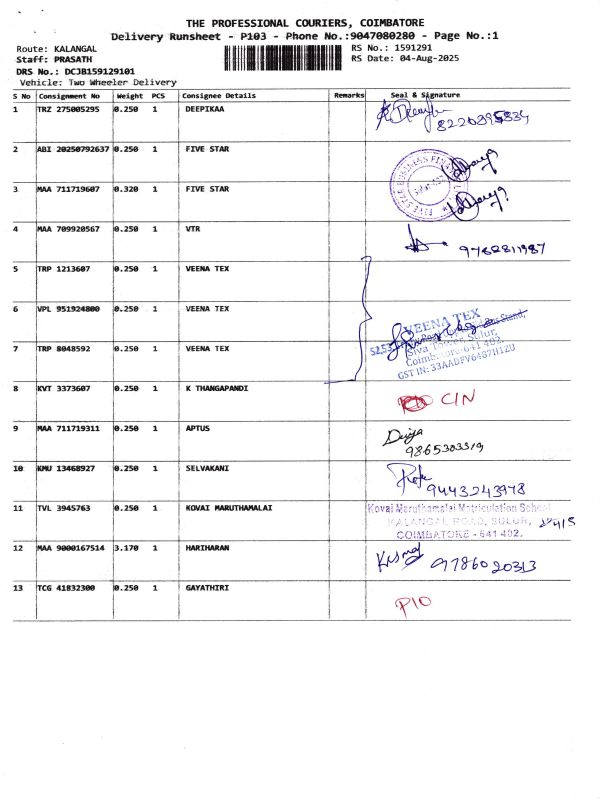 THE PROFESSIONAL COURIERS, COIMBATORE
Delivery Runsheet - P103 - Phone No.:9047080280 - Page No.:1
Route: KALANGAL RS No.: 1591291
Staff: PRASATH RS Date: 04-Aug-2025
DRS No.: DCJB159129101
Vehicle: Two Wheeler Delivery
S No Consignment No Weight PCS Consignee Details Remarks Seal & Signature
1 TRZ 275005295 0.250 1 DEEPIKAA
8220895834
2 ABI 20250792637 0.250 1 FIVE STAR
FIVE STAR BUSINESS
3 MAA 711719607 0.320 1 FIVE STAR
4 MAA 709920567 0.250 1 VTR
9762811987
5 TRP 1213607 0.250 1 VEENA TEX
6 VPL 951924800 0.250 1 VEENA TEX
VEENA TEX
Stand,
Sulur,
Coimbatore 641 402.
GST IN: 33AADFV6487H1ZU
7 TRP 8048592 0.250 1 VEENA TEX
8 KVT 3373607 0.250 1 K THANGAPANDI
CIN
9 MAA 711719311 0.250 1 APTUS
Divya
9865303319
10 KMU 13468927 0.250 1 SELVAKANI
9443243978
11 TVL 3945763 0.250 1 KOVAI MARUTHAMALAI
Kovai Maruthamalai Matriculation School
KALANGAL ROAD, SULUR,
COIMBATORE - 641 402.
12 MAA 9000167514 3.170 1 HARIHARAN
9786020313
13 TCG 41832300 0.250 1 GAYATHIRI
P10